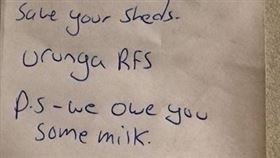 Save your sheds.
Urunga RFS
P.S - we owe you
some milk.